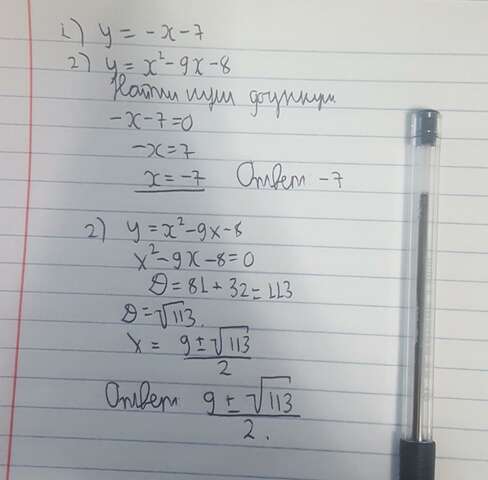 1) y = -x-7
2) y = x²-9x-8
Найти нули функции
-x-7=0
-x=7
x=-7 Ответ -7
2) y=x²-9x-8
x²-9x-8=0
D=81+32=113
D=√113.
x = 9±√113/2
Ответ 9±√113/2.